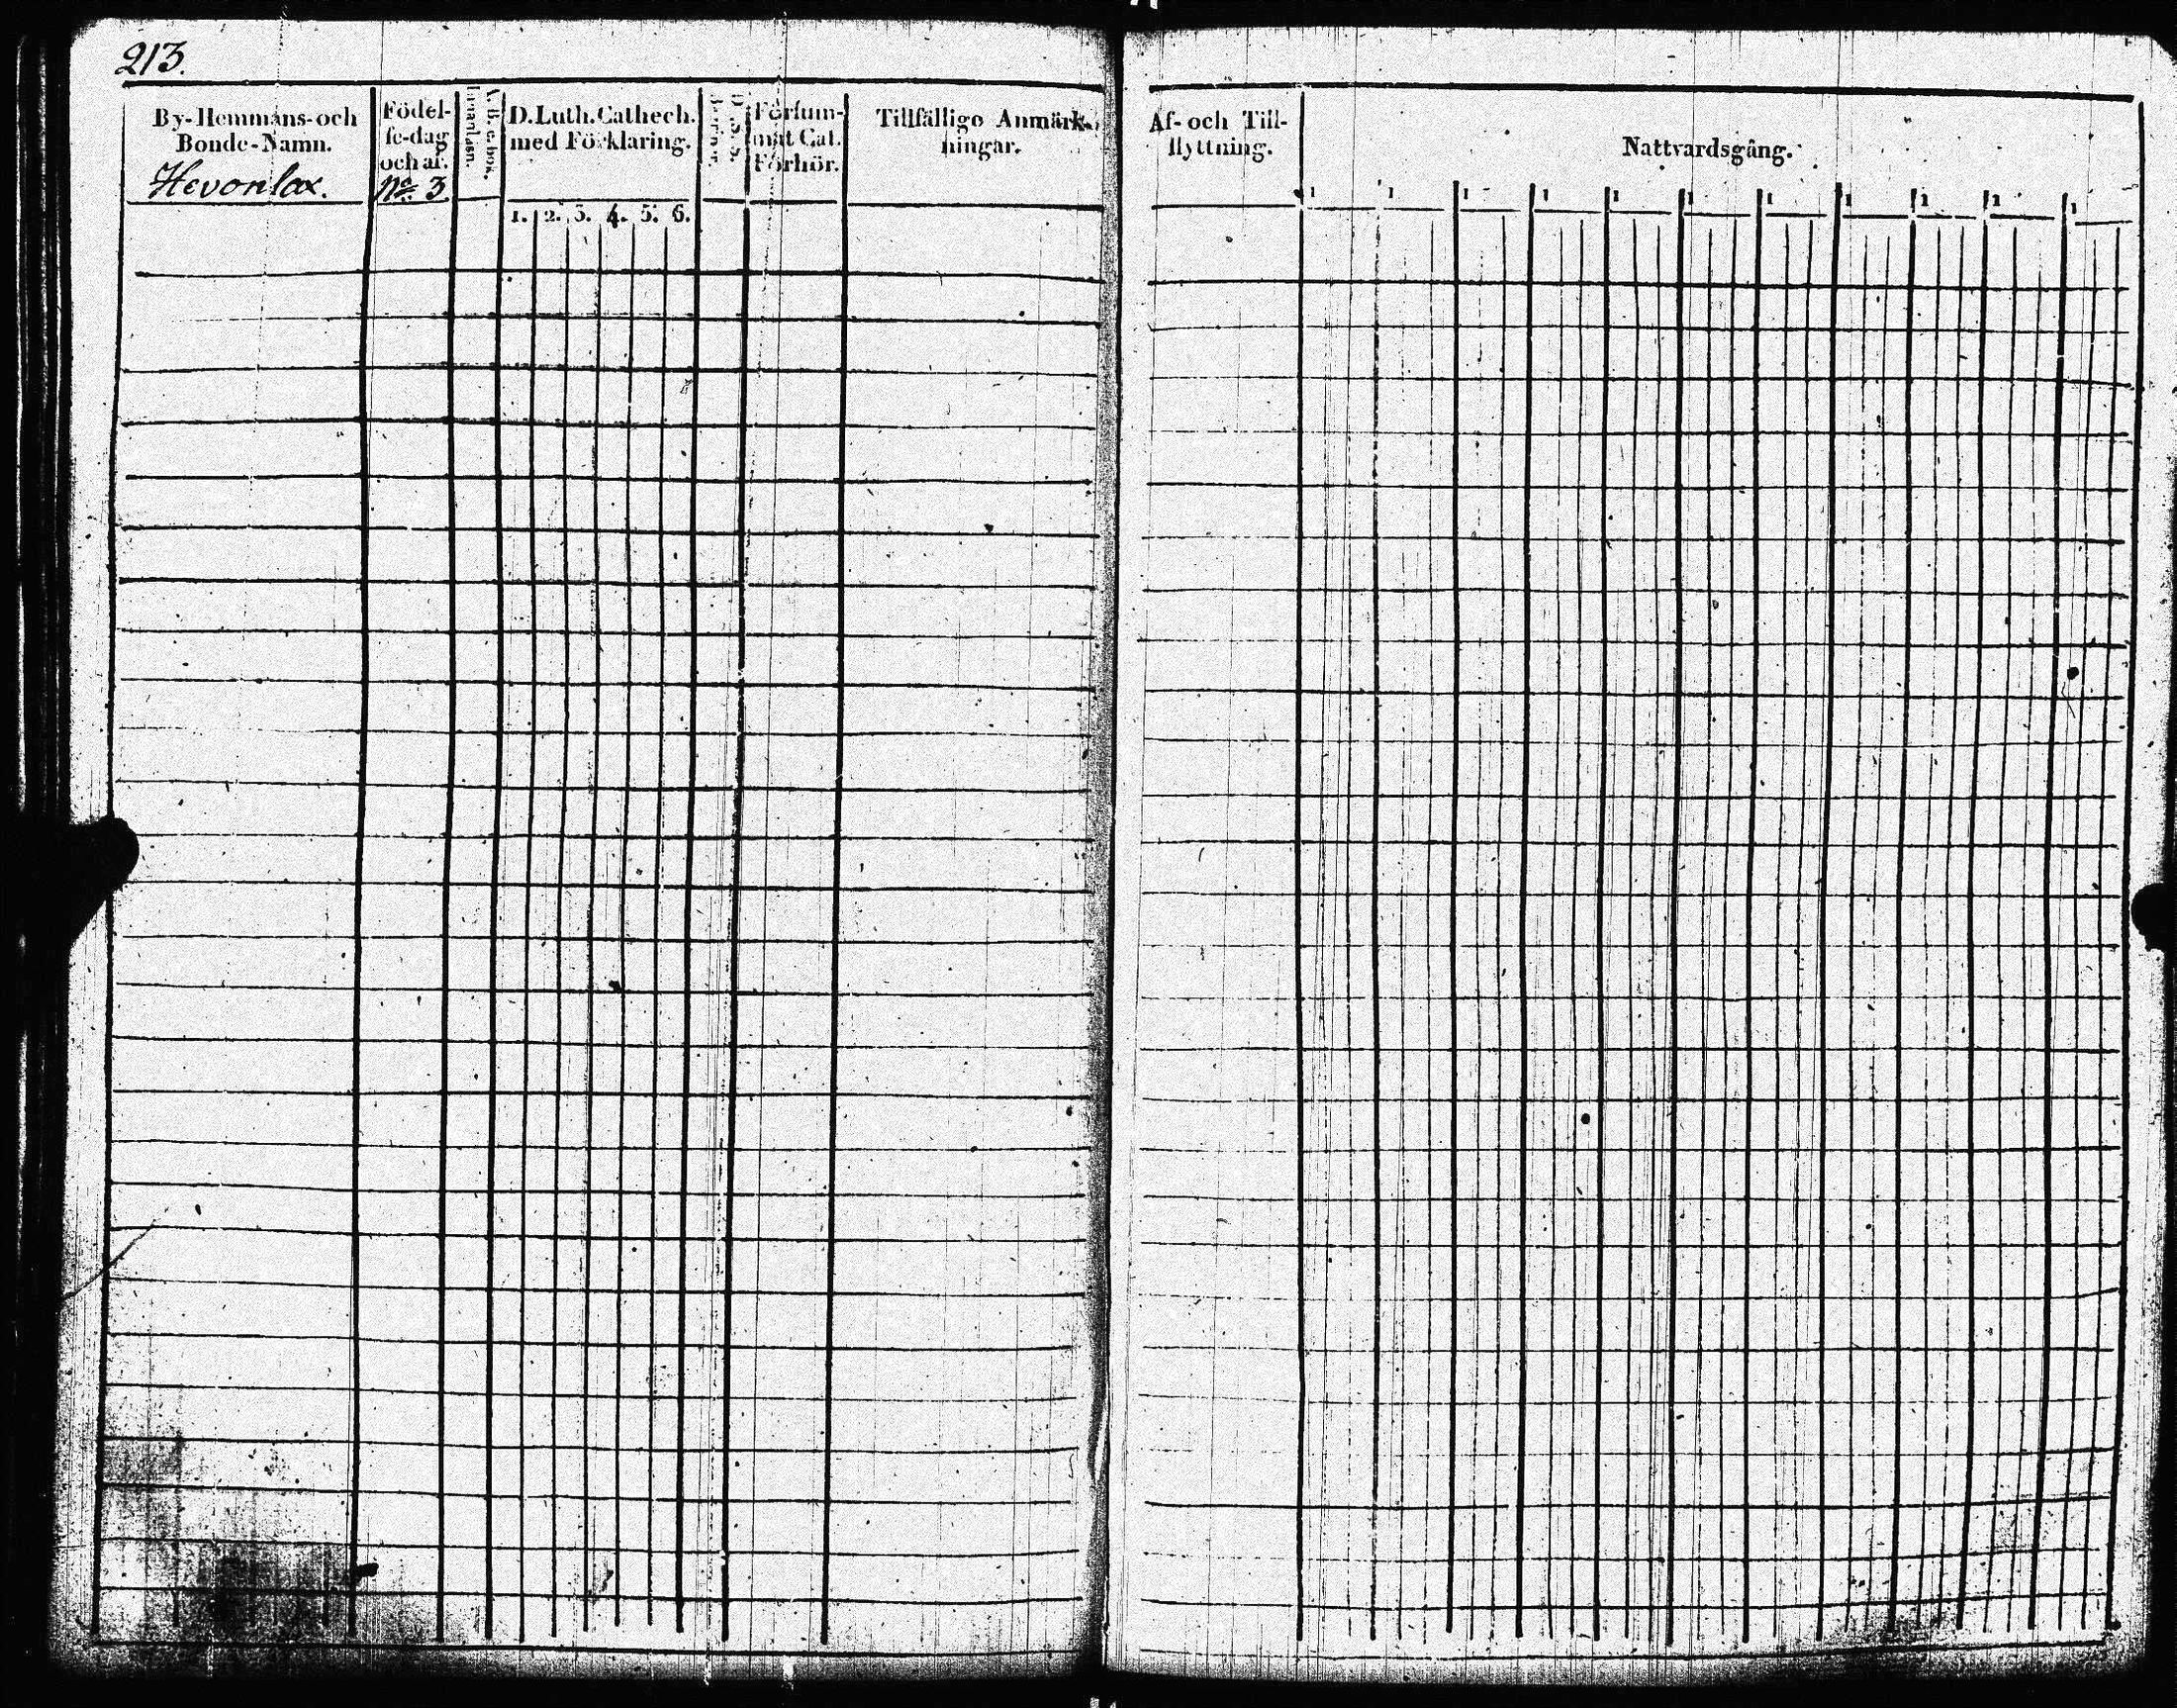 213.
By-Hemmans-och
Bonde-Namn.
Hevonlax.
Födel-
se-dag
och år.
No 3
Innanläsn.
D. Luth. Cathech.
med Förklaring.
1. 2. 3. 4. 5. 6.
Försum-
mat Cat.
Förhör.
Tillfällige Anmärk-
ningar.
Af- och Till-
flyttning.
Nattvardsgång.
1 1 1 1 1 1 1 1 1 1 1